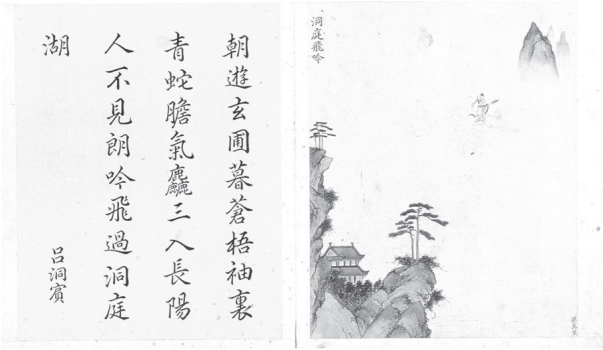 洞庭飛吟
朝遊玄圃暮蒼梧袖裏
青蛇膽氣麤三入長陽
人不見朗吟飛過洞庭
湖
呂洞賓